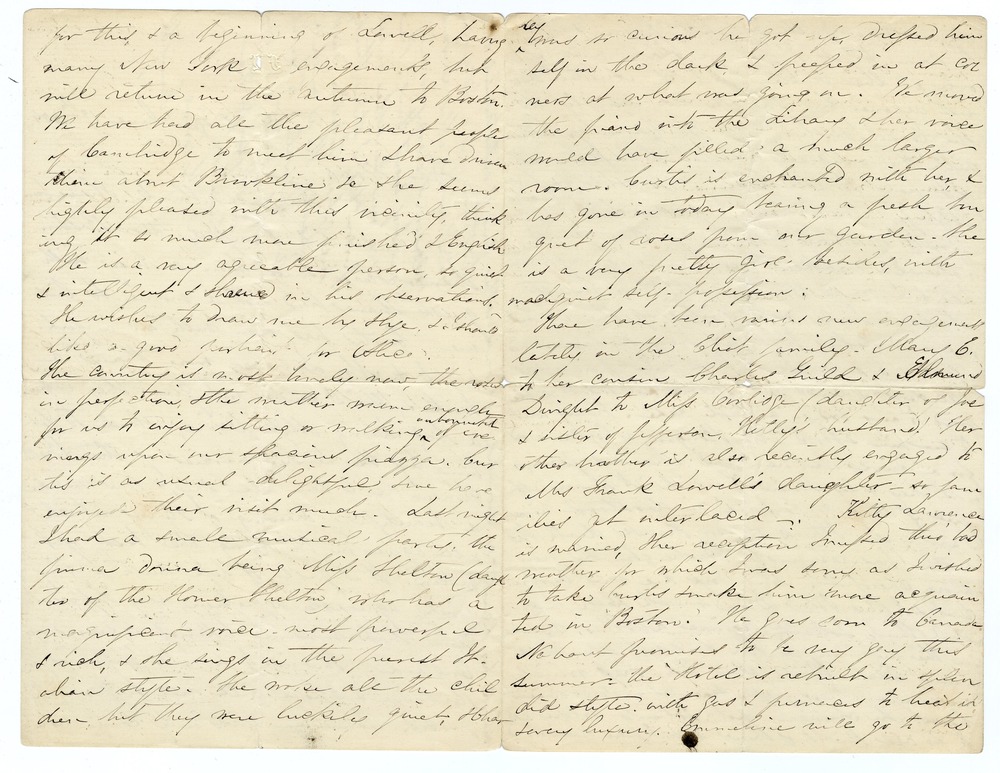 for this, & a beginning of Lowell, having
many New York engagements, but
will return in the autumn to Boston.
We have had all the pleasant people
of Cambridge to meet him & have driven
them about Brookline & she seems
highly pleased with this vicinity, think
ing it so much more finished & English
He is a very agreeable person, so quiet
& intelligent & shrewd in his observations.
He wishes to draw me he says, & I should
like a good portrait for Alice.
The country is most lovely now, the roses
in perfection, & the weather warm enough
for us to enjoy sitting or walking out of eve
nings upon our spacious piazza. Cur
tis is as usual delightful, & we have
enjoyed their visit much. Last night
I had a small musical party, the
prima donna being Miss Shelton (daugh
ter of the Homer Shelton) who has a
magnificent voice, most powerful
& rich, & she sings in the purest It
alian style. She woke all the chil
dren but they were luckily quiet, & Har
ley was so curious he got up, dressed him
self in the dark & peeped in at cor
ners at what was going on. We moved
the piano into the Library & her voice
would have filled a much larger
room. Curtis is enchanted with her, &
has gone in today bearing a fresh bou
quet of roses from our garden. She
is a very pretty girl besides, with
quiet self-possession.
There have been various new engagements
lately in the Eliot family. Mary E.
to her cousin Charles Guild & Edmund
Dwight to Miss Coolidge (daughter of Joe
& sister of Jefferson, Hetty's husband. Her
other brother is also recently engaged to
Mrs Frank Lowell's daughter - so fam
ilies get interlaced -. Kitty Lawrence
is married, & her reception I missed this bad
weather, for which I was sorry as I wished
to take Curtis & make him more acquain
ted in Boston. He goes soon to Canada.
Nahant promises to be very gay this
summer. The Hotel is rebuilt in splen
did style with gas & furnaces to heat it
& every luxury. Emmeline will go to the